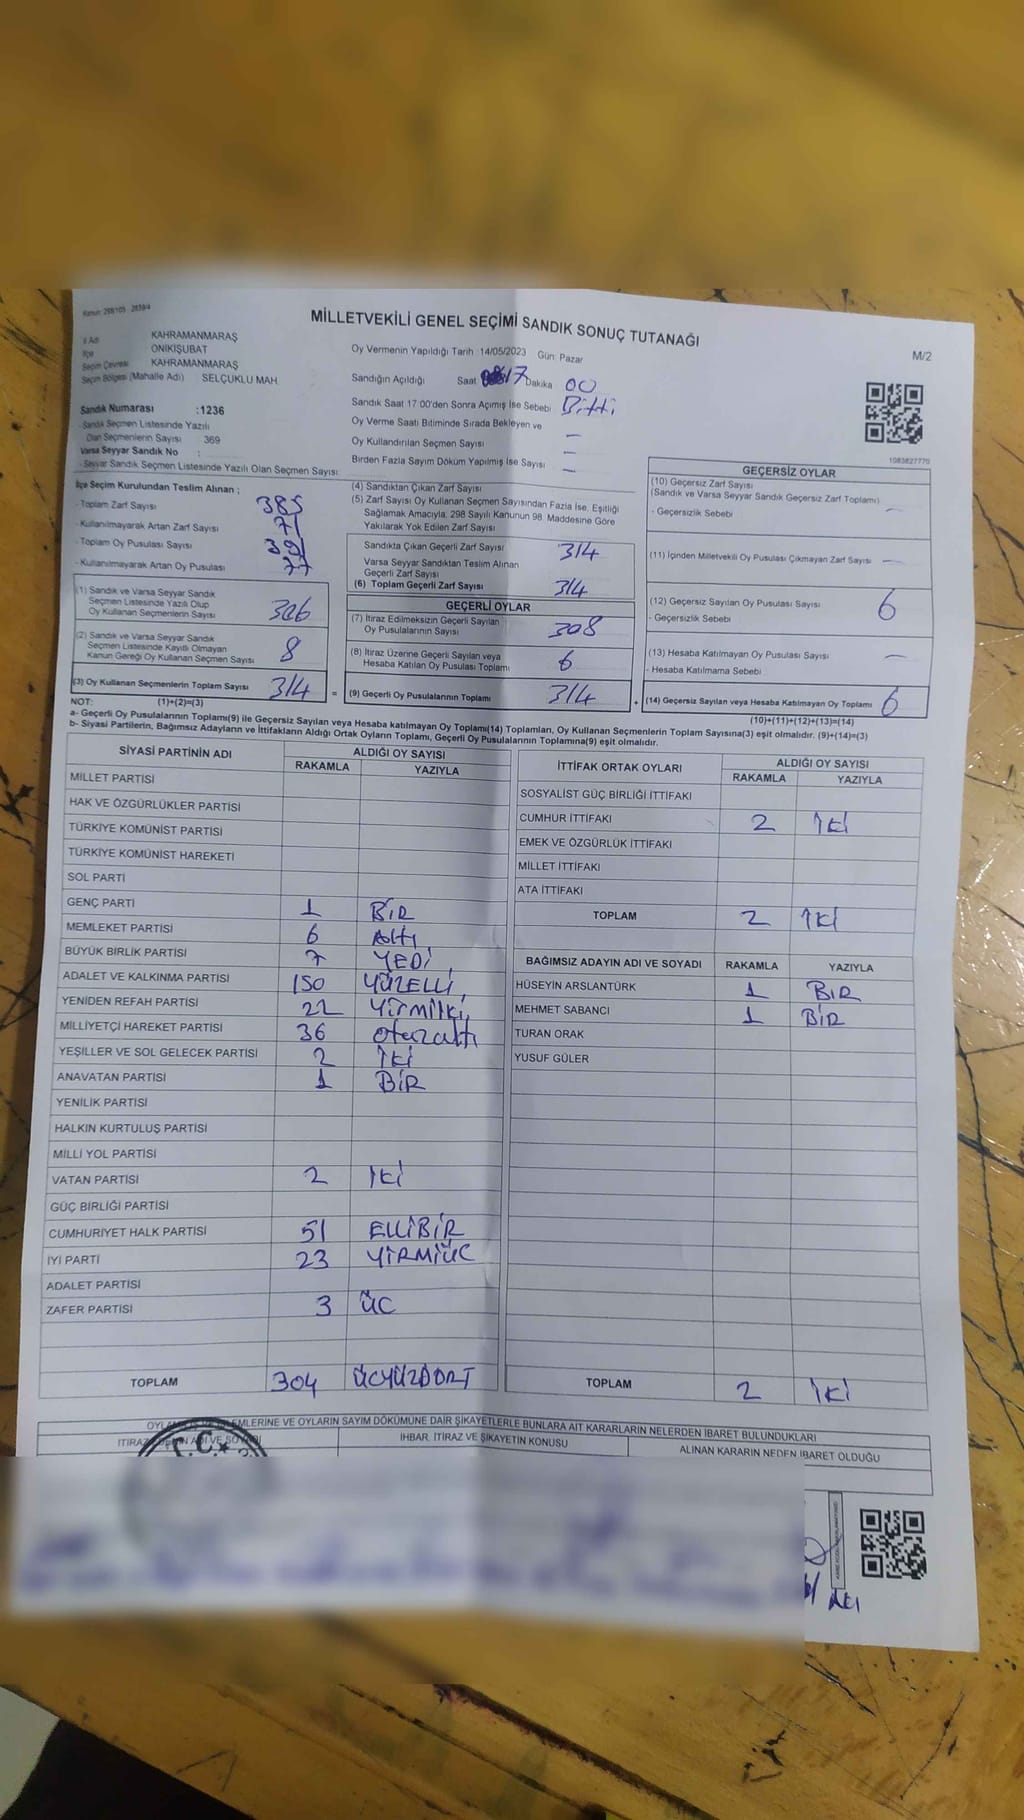 MİLLETVEKİLİ GENEL SEÇİMİ SANDIK SONUÇ TUTANAĞI
M/2
İl Adı KAHRAMANMARAŞ
İlçe ONİKİŞUBAT
Seçim Çevresi KAHRAMANMARAŞ
Seçim Bölgesi (Mahalle Adı) SELÇUKLU MAH.
Sandık Numarası :1236
- Sandık Seçmen Listesinde Yazılı
Olan Seçmenlerin Sayısı 369
Varsa Seyyar Sandık No :
- Seyyar Sandık Seçmen Listesinde Yazılı Olan Seçmen Sayısı:
Oy Vermenin Yapıldığı Tarih 14/05/2023 Gün: Pazar
Sandığın Açıldığı Saat 17 Dakika 00
Sandık Saat 17:00'den Sonra Açımış İse Sebebi Bitti
Oy Verme Saati Bitiminde Sırada Bekleyen ve
Oy Kullandırılan Seçmen Sayısı —
Birden Fazla Sayım Döküm Yapılmış İse Sayısı —
1083827770
İlçe Seçim Kurulundan Teslim Alınan ;
- Toplam Zarf Sayısı 385
- Kullanılmayarak Artan Zarf Sayısı 71
- Toplam Oy Pusulası Sayısı 391
- Kullanılmayarak Artan Oy Pusulası 77
(1) Sandık ve Varsa Seyyar Sandık
Seçmen Listesinde Yazılı Olup
Oy Kullanan Seçmenlerin Sayısı 306
(2) Sandık ve Varsa Seyyar Sandık
Seçmen Listesinde Kayıtlı Olmayan
Kanun Gereği Oy Kullanan Seçmen Sayısı 8
(3) Oy Kullanan Seçmenlerin Toplam Sayısı 314
(1)+(2)=(3)
(4) Sandıktan Çıkan Zarf Sayısı
(5) Zarf Sayısı Oy Kullanan Seçmen Sayısından Fazla İse, Eşitliği
Sağlamak Amacıyla; 298 Sayılı Kanunun 98. Maddesine Göre
Yakılarak Yok Edilen Zarf Sayısı
Sandıkta Çıkan Geçerli Zarf Sayısı 314
Varsa Seyyar Sandıktan Teslim Alınan
Geçerli Zarf Sayısı
(6) Toplam Geçerli Zarf Sayısı 314
GEÇERLİ OYLAR
(7) İtiraz Edilmeksizin Geçerli Sayılan
Oy Pusulalarının Sayısı 308
(8) İtiraz Üzerine Geçerli Sayılan veya
Hesaba Katılan Oy Pusulası Toplamı 6
= (9) Geçerli Oy Pusulalarının Toplamı 314
GEÇERSİZ OYLAR
(10) Geçersiz Zarf Sayısı
(Sandık ve Varsa Seyyar Sandık Geçersiz Zarf Toplamı) —
- Geçersizlik Sebebi
(11) İçinden Milletvekili Oy Pusulası Çıkmayan Zarf Sayısı —
(12) Geçersiz Sayılan Oy Pusulası Sayısı 6
- Geçersizlik Sebebi
(13) Hesaba Katılmayan Oy Pusulası Sayısı —
- Hesaba Katılmama Sebebi
+ (14) Geçersiz Sayılan veya Hesaba Katılmayan Oy Toplamı 6
(10)+(11)+(12)+(13)=(14)
NOT:
a- Geçerli Oy Pusulalarının Toplamı(9) ile Geçersiz Sayılan veya Hesaba katılmayan Oy Toplamı(14) Toplamları, Oy Kullanan Seçmenlerin Toplam Sayısına(3) eşit olmalıdır. (9)+(14)=(3)
b- Siyasi Partilerin, Bağımsız Adayların ve İttifakların Aldığı Ortak Oyların Toplamı, Geçerli Oy Pusulalarının Toplamına(9) eşit olmalıdır.
SİYASİ PARTİNİN ADI ALDIĞI OY SAYISI
RAKAMLA YAZIYLA
MİLLET PARTİSİ
HAK VE ÖZGÜRLÜKLER PARTİSİ
TÜRKİYE KOMÜNİST PARTİSİ
TÜRKİYE KOMÜNİST HAREKETİ
SOL PARTİ
GENÇ PARTİ 1 BİR
MEMLEKET PARTİSİ 6 Altı
BÜYÜK BİRLİK PARTİSİ 7 YEDİ
ADALET VE KALKINMA PARTİSİ 150 YÜZELLİ
YENİDEN REFAH PARTİSİ 22 Yirmiiki
MİLLİYETÇİ HAREKET PARTİSİ 36 otuzaltı
YEŞİLLER VE SOL GELECEK PARTİSİ 2 İki
ANAVATAN PARTİSİ 1 BİR
YENİLİK PARTİSİ
HALKIN KURTULUŞ PARTİSİ
MİLLİ YOL PARTİSİ
VATAN PARTİSİ 2 İki
GÜÇ BİRLİĞİ PARTİSİ
CUMHURİYET HALK PARTİSİ 51 ELLİBİR
İYİ PARTİ 23 YİRMİÜC
ADALET PARTİSİ
ZAFER PARTİSİ 3 ÜC
TOPLAM 304 ÜCYÜZDÖRT
İTTİFAK ORTAK OYLARI ALDIĞI OY SAYISI
RAKAMLA YAZIYLA
SOSYALİST GÜÇ BİRLİĞİ İTTİFAKI
CUMHUR İTTİFAKI 2 İki
EMEK VE ÖZGÜRLÜK İTTİFAKI
MİLLET İTTİFAKI
ATA İTTİFAKI
TOPLAM 2 İki
BAĞIMSIZ ADAYIN ADI VE SOYADI RAKAMLA YAZIYLA
HÜSEYİN ARSLANTÜRK 1 BİR
MEHMET SABANCI 1 BİR
TURAN ORAK
YUSUF GÜLER
TOPLAM 2 İki
İŞLEMLERİNE VE OYLARIN SAYIM DÖKÜMÜNE DAİR ŞİKAYETLERLE BUNLARA AİT KARARLARIN NELERDEN İBARET BULUNDUKLARI
İHBAR, İTİRAZ VE ŞİKAYETİN KONUSU
ALINAN KARARIN NEDEN İBARET OLDUĞU
T.C.